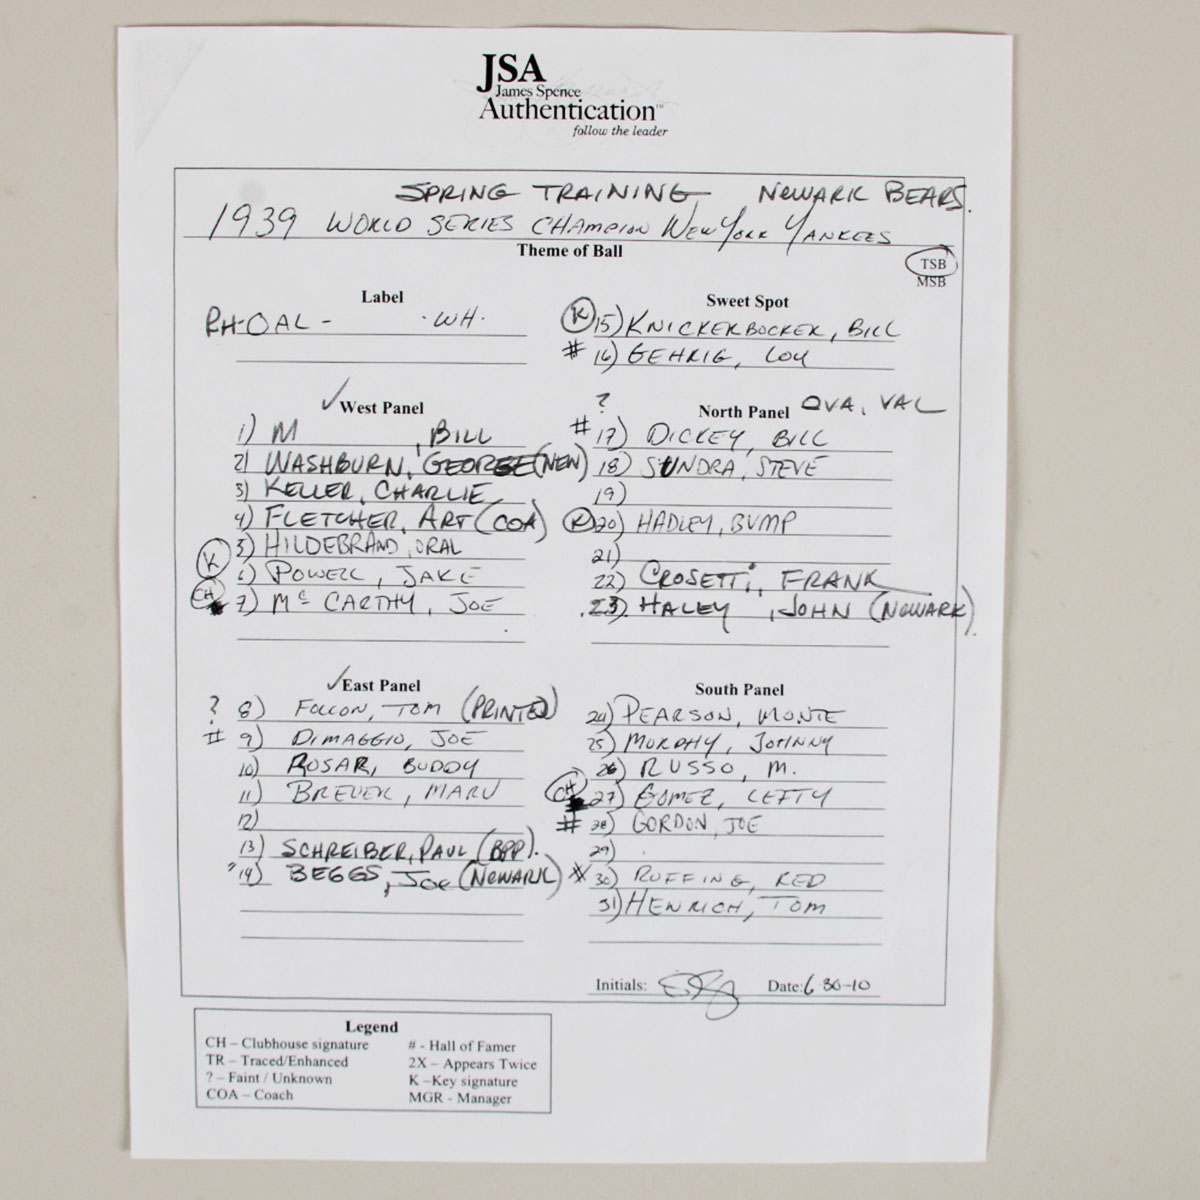 JSA
James Spence
Authentication™
follow the leader
SPRING TRAINING NEWARK BEARS.
1939 WORLD SERIES CHAMPION NEW YORK YANKEES
Theme of Ball
TSB
MSB
Label
RH-OAL - . WH.
Sweet Spot
K 15) KNICKERBOCKER, BILL
# 16) GEHRIG, LOU
✓ West Panel
1) M , BILL
2) WASHBURN, GEORGE (NEW)
3) KELLER, CHARLIE
4) FLETCHER, ART (COA)
5) HILDEBRAND, ORAL
K 6) POWELL, JAKE
CH 7) McCARTHY, JOE
? North Panel OVA, VAL
# 17) DICKEY, BILL
18) SUNDRA, STEVE
19)
K 20) HADLEY, BUMP
21)
22) CROSETTI, FRANK
23) HALEY, JOHN (NEWARK)
✓ East Panel
? 8) TOM (PRINTED)
# 9) DIMAGGIO, JOE
10) ROSAR, BUDDY
11) BREUER, MARV
12)
13) SCHREIBER, PAUL (BPP).
14) BEGGS, JOE (NEWARK)
South Panel
24) PEARSON, MONTE
25) MURPHY, JOHNNY
26) RUSSO, M.
CH 27) GOMEZ, LEFTY
# 28) GORDON, JOE
29)
# 30) RUFFING, RED
31) HENRICH, TOM
Initials: Date: 6 30-10
Legend
CH – Clubhouse signature # - Hall of Famer
TR – Traced/Enhanced 2X – Appears Twice
? – Faint / Unknown K –Key signature
COA – Coach MGR - Manager